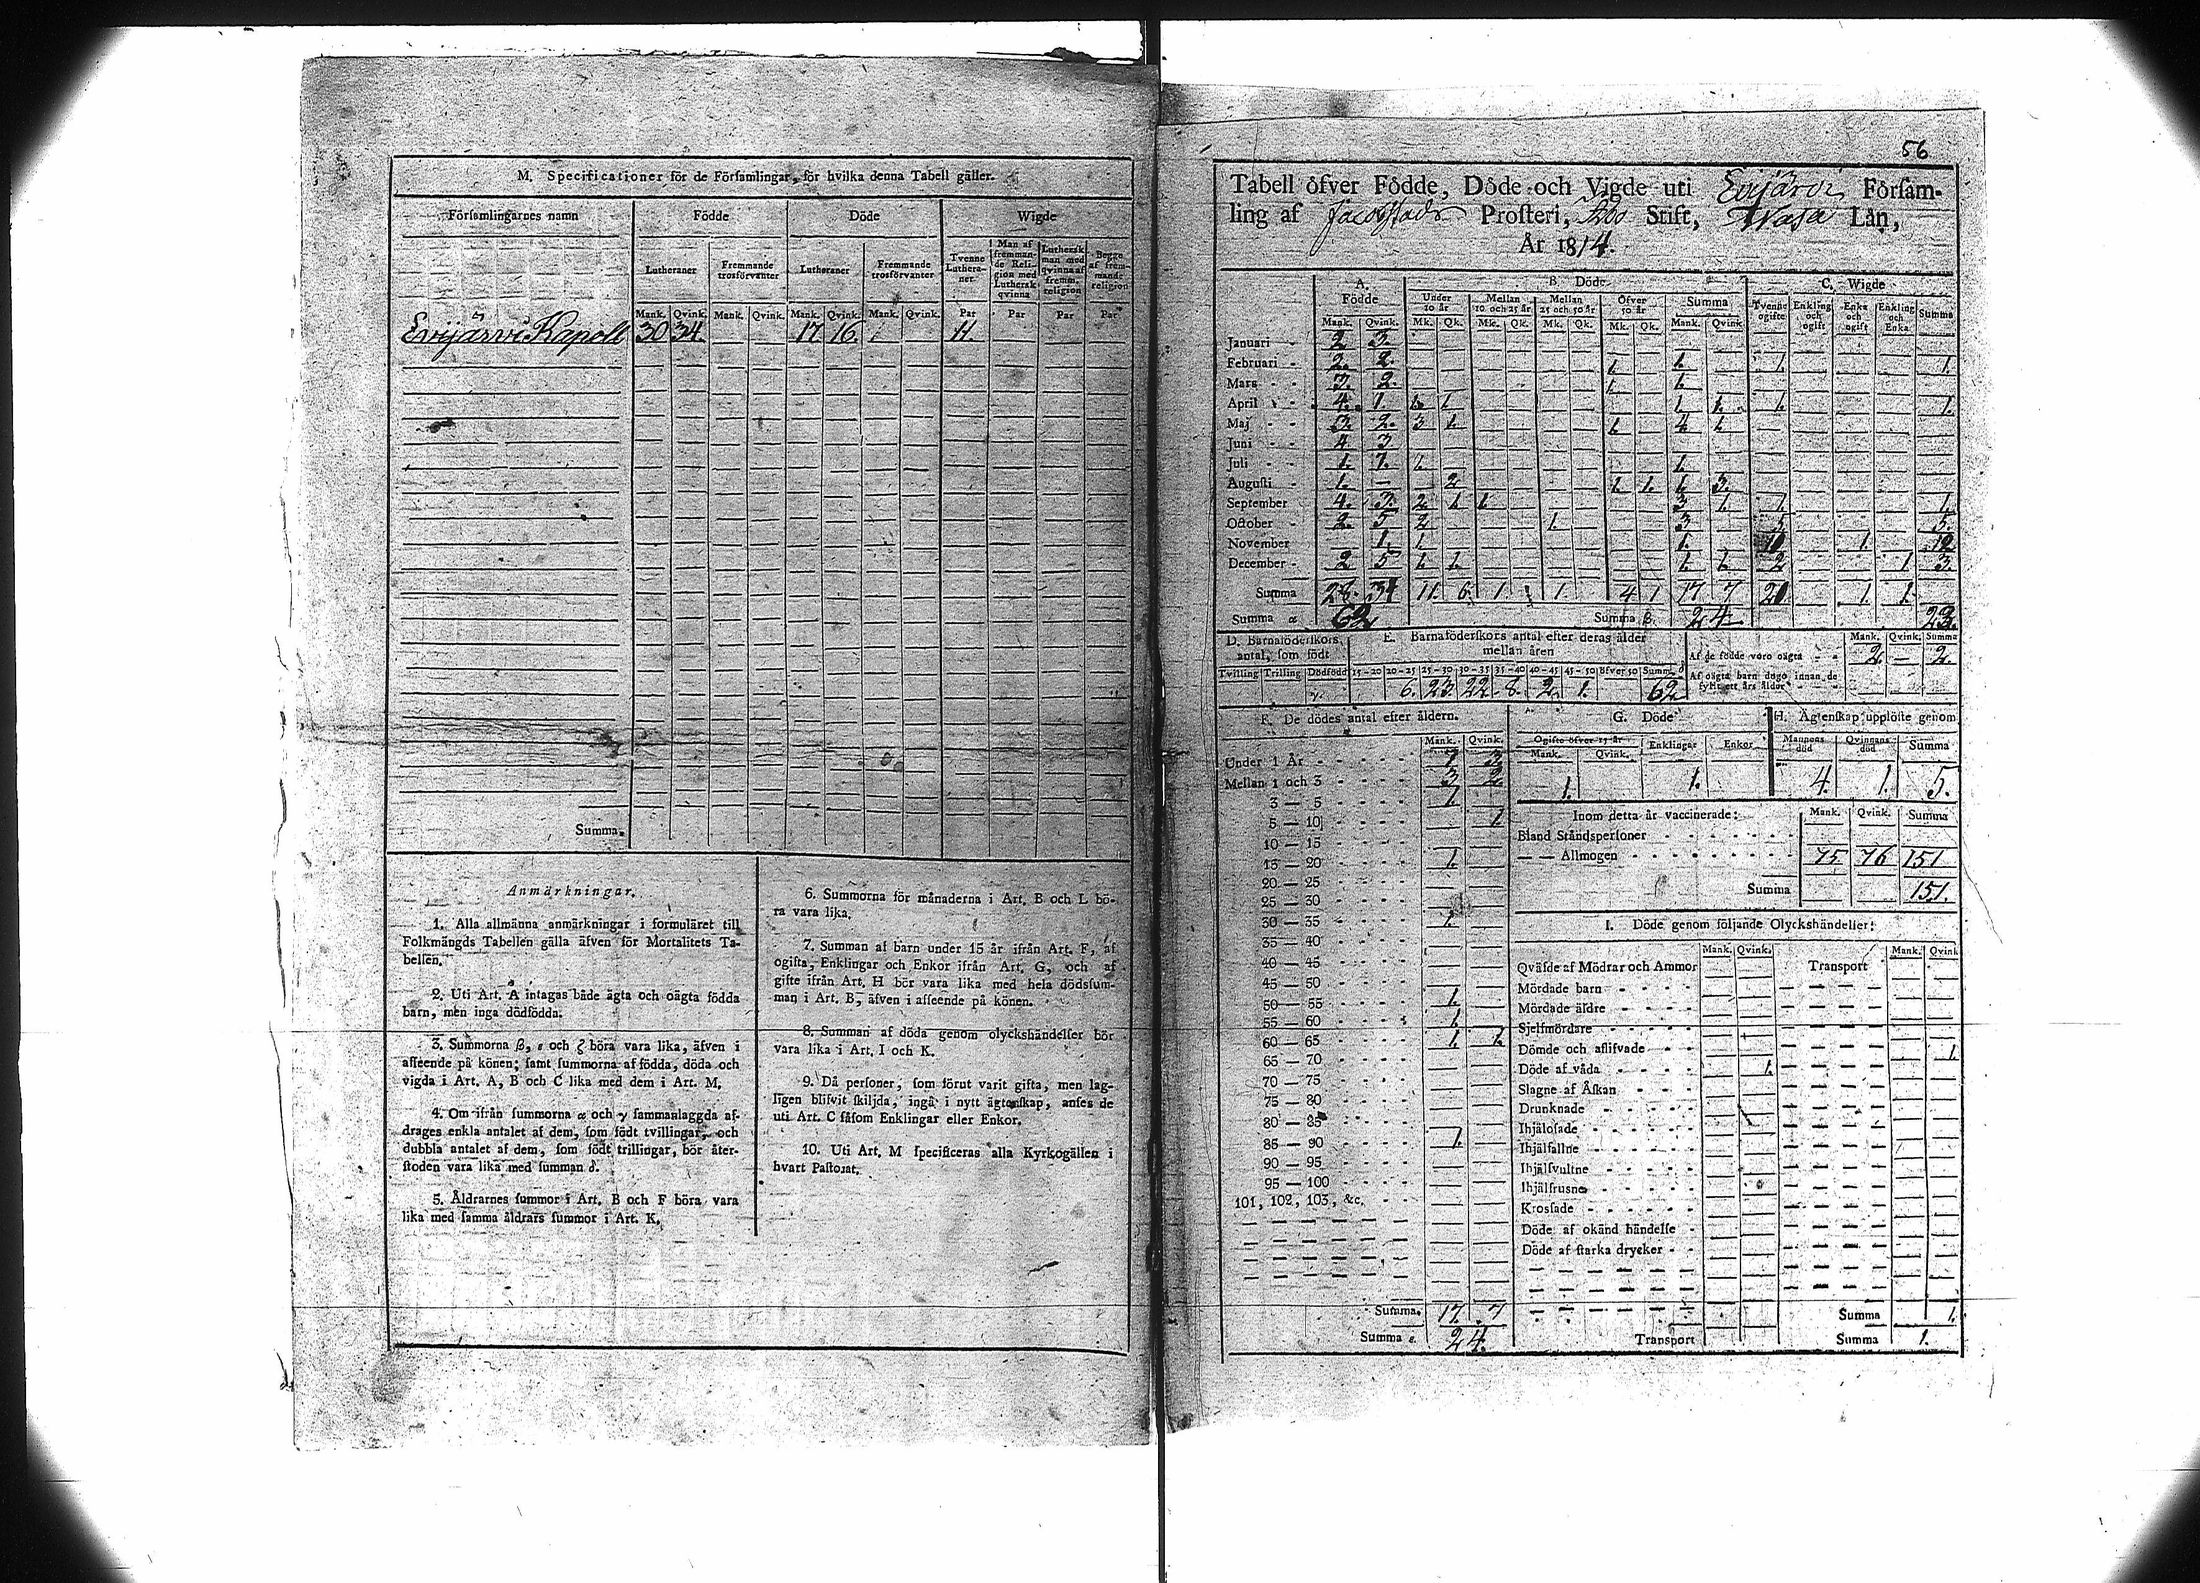 M. Specificationer för de Förſamlingar, för hvilka denna Tabell gäller.
Förſamlingarnes namn Födde Döde Wigde
Lutheraner Fremmande trosförvanter Lutheraner Fremmande trosförvanter Tvenne Lutheraner Man af fremmande Religion med Luthersk qvinna Luthersk man med qvinna af fremm. religion Begge af fremmande religion
Mank. Qvink. Mank. Qvink. Mank. Qvink. Mank. Qvink. Par Par Par Par
Evijärvi Kapell 30 34. 17. 16. 11.
Summa.
Anmärkningar.
1. Alla allmänna anmärkningar i formuläret till
Folkmängds Tabellen gälla äfven för Mortalitets Ta-
bellen.
2. Uti Art. A intagas både ägta och oägta födda
barn, men inga dödfödda.
3. Summorna β, ε och ζ böra vara lika, äfven i
aſſeende på könen; ſamt ſummorna af födda, döda och
vigda i Art. A, B och C lika med dem i Art. M.
4. Om ifrån ſummorna α och γ ſammanlaggda af-
drages enkla antalet af dem, ſom födt tvillingar, och
dubbla antalet af dem, ſom födt trillingar, bör åter-
ſtoden vara lika med ſumman δ.
5. Åldrarnes ſummor i Art. B och F böra vara
lika med ſamma åldrars ſummor i Art. K.
6. Summorna för månaderna i Art. B och L bö-
ra vara lika.
7. Summan af barn under 15 år ifrån Art. F, af
ogifta, Enklingar och Enkor ifrån Art. G, och af
gifte ifrån Art. H bör vara lika med hela dödsſum-
man i Art. B, äfven i aſſeende på könen.
8. Summan af döda genom olyckshändelſer bör
vara lika i Art. I och K.
9. Då perſoner, ſom förut varit gifta, men lag-
ligen blifvit ſkiljda, ingå i nytt ägtenſkap, anſes de
uti Art. C ſåſom Enklingar eller Enkor.
10. Uti Art. M ſpecificeras alla Kyrkogällen i
hvart Paſtorat.
56
Tabell öfver Födde, Döde och Vigde uti Evijärvi Förſam-
ling af Jacobstads Proſteri, Åbo Stift, Wasa Län,
År 1814.
A. Födde B. Döde C. Wigde
Under 10 år Mellan 10 och 25 år Mellan 25 och 50 år Öfver 50 år Summa Tvenne ogifte Enkling och ogift Enka och ogift Enkling och Enka Summa
Mank. Qvink. Mk. Qk. Mk. Qk. Mk. Qk. Mk. Qk. Mank. Qvink.
Januari 2 3.
Februari 2. 2. 1. 1. 1. 1.
Mars 3. 2. 1. 1.
April 4. 1. 1. 1. 1. 1. 1. 1.
Maj 3. 2. 3 1. 1. 4 1.
Juni 4 3
Juli 1. 7. 1. 1.
Auguſti 1. — 2 1. 1. 1. 3.
September 4. 3. 2 1 1. 3 1. 1. 1.
October 2. 5 2 1. 3 5 5.
November 1. 1. 1. 1. 12
December 2 5 1. 1. 1. 1. 2 1 3.
Summa 28. 34 11. 6. 1 1. 4 1 17 7 1. 1.
Summa α 62 Summa β. 24 23.
D. Barnaföderſkors antal, ſom födt E. Barnaföderſkors antal efter deras ålder mellan åren Mank. Qvink. Summa
Af de födde voro oägta 2. — 2.
Tvilling Trilling Dödfödd 15-20 20-25 25-30 30-35 35-40 40-45 45-50 öfver 50 Summa δ Af oägta barn dogo innan de fyllt ett års ålder
γ. 6. 23. 22 8. 2. 1. 62
F. De dödes antal efter åldern. G. Döde H. Ägtenſkap upplöſte genom
Mank. Qvink. Ogifte öfver 15 år Enklingar Enkor Mannens död Qvinnans död Summa
Mank. Qvink.
1. 1. 4. 1. 5.
Under 1 År 7 3
Mellan 1 och 3 3 2
3 — 5 1.
5 — 10 1
10 — 15
15 — 20 1.
20 — 25
25 — 30
30 — 35 1.
35 — 40
40 — 45
45 — 50
50 — 55 1.
55 — 60 1.
60 — 65 1. 1.
65 — 70
70 — 75
75 — 80
80 — 85
85 — 90 1.
90 — 95
95 — 100
101, 102, 103, &c.
Summa. 17. 7
Summa ε. 24.
Inom detta år vaccinerade: Mank. Qvink. Summa
Bland Ståndsperſoner
— — Allmogen 75. 76 151
Summa 151.
I. Döde genom följande Olyckshändelſer:
Mank. Qvink. Mank. Qvink
Qväfde af Mödrar och Ammor Transport
Mördade barn
Mördade äldre
Sjelfmördare
Dömde och aflifvade 1.
Döde af våda 1.
Slagne af Åſkan
Drunknade
Ihjäloſade
Ihjälfallne
Ihjälſvultne
Ihjälfrusne
Krosſade
Döde af okänd händelſe
Döde af ſtarka drycker
Summa 1.
Transport Summa 1.